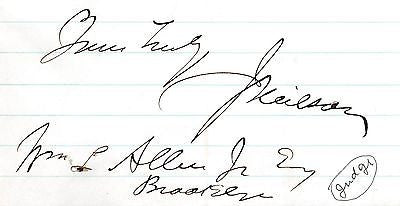 Yours truly
J Neilson
Wm L Allen Jr Esq
Brooklyn
Judge